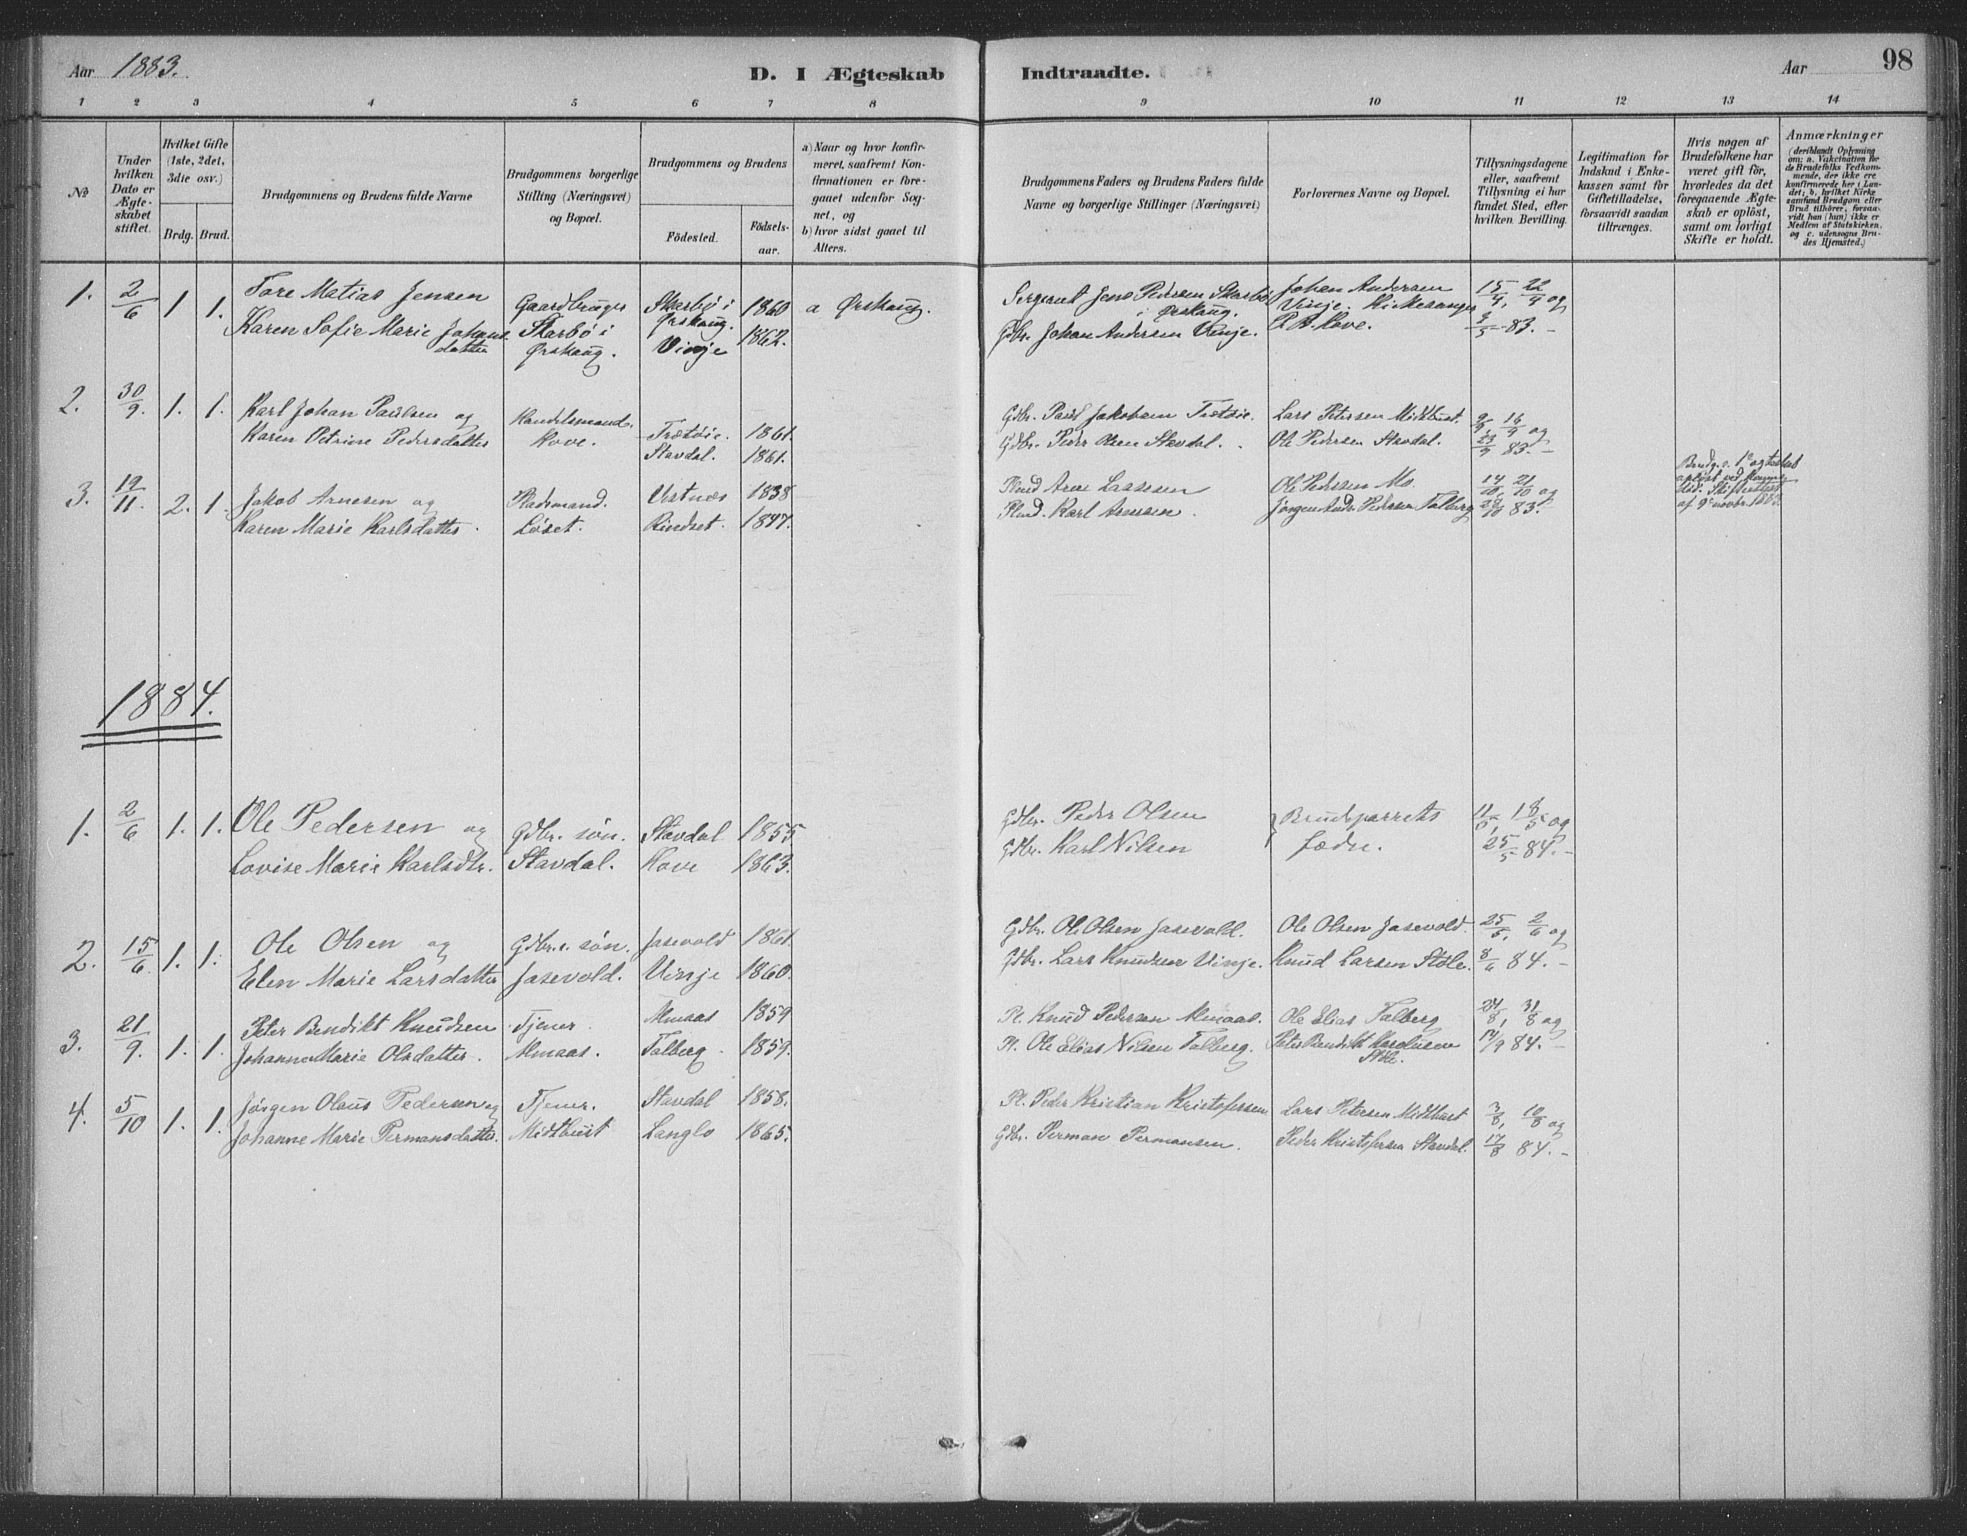 Aar 1883. D. I Ægteskab Indtraadte. Aar 98
1 2 3 4 5 6 7 8 9 10 11 12 13 14
No
Under hvilken Dato er Ægteskabet stiftet.
Hvilket Gifte (1ste, 2det, 3die osv.)
Brdg. Brud.
Brudgommens og Brudens fulde Navne
Brudgommens borgerlige Stilling (Næringsvei) og Bopæl.
Brudgommens og Brudens
Fødested. Fødselsaar.
a) Naar og hvor konfirmeret, saafremt Konfirmationen er foregaaet udenfor Sognet, og
b) hvor sidst gaaet til Alters.
Brudgommens Faders og Brudens Faders fulde Navne og borgerlige Stillinger (Næringsvei)
Forlovernes Navne og Bopæl.
Tillysningsdagene eller, saafremt Tillysning ei har fundet Sted, efter hvilken Bevilling.
Legitimation for Indskud i Enkekassen samt for Giftetilladelse, forsaavidt saadan tiltrænges.
Hvis nogen af Brudefolkene har været gift før, hvorledes da det foregaaende Ægteskab er opløst, samt om lovligt Skifte er holdt.
Anmærkninger (deriblandt Oplysning om: a. Vakcination for de Brudefolks Vedkommende, der ikke ere konfirmerede her i Landet; b. hvilket Kirkesamfund Brudgom eller Brud tilhører, forsaavidt han (hun) ikke er Medlem af Statskirken, og c. udensogns Brudes Hjemsted.)
1. 2/6 1 1. Tore Matias Jensen Gaardbruger Skarbø i Ørskaug. 1860 a Ørskaug. Sergeant Jens Pedersen Skarbø i Ørskaug. Johan Andersen Vinje. Kirkesanger 15/4, 22/4 og
Karen Sofie Marie Johansdatter Skarbø i Ørskaug. Vinje 1862. Gdbr. Johan Andersen Vinje. Hove. 3/5 83.-
2. 30/9. 1. 1. Karl Johan Paulsen og Handelsmand. Trætøie. 1861. Gdbr. Paul Jakobsen Trætøie. Lars Petersen Midtbust. 9/9, 16/9 og
Karen Petrine Pedersdatter Hove. Stavdal. 1861. Gdbr. Peder Olsen Stavdal. Ole Pedersen Stavdal. 23/9 83.-
3. 12/11. 2. 1. Jakob Arnesen og Pladsmand. Vestnæs 1838 Arne Lassesen Ole Pedersen Mo. 14/10, 21/10 og
Karen Marie Karlsdatter. Løset. Rindset. 1847. Karl Arnesen. Jørgen Andr. Pedersen Talberg 83.-
Brudg.s 1e ægteskab opløst ved død. Skifteattest af 9e novbr. 1883.
1884.
1. 2/6 1. 1. Ole Pedersen og Gdbr. søn. Stavdal 1855 Gdbr. Peder Olsen Brudeparrets 11/5, 18/5 og
Lovise Marie Karlsdtr. Stavdal. Hove 1863. Gdbr. Karl Nilsen fædre. 25/5 84.-
2. 15/6. 1. 1. Ole Olsen og Gdbr.s. søn. Jasevold 1861. Gdbr. Ole Olsen Jasevold. Ole Olsen Jasevold. 25/5, 2/6 og
Elen Marie Larsdatter Jasevold. Vinje 1860. Gdbr. Lars Knudsen Vinje. Knud Larsen Støle. 8/6 84.-
3. 21/9. 1. 1. Peter Bendikt Knudsen Tjener. Almaas 1859 Pl. Knud Pedersen Almaas. Ole Elias Talberg 24/8, 31/8 og
Johanne Marie Olsdatter. Almaas. Talberg. 1859. Pl. Ole Elias Nilsen Talberg. Peter Bendikt Støle. 14/9 84.-
4. 5/10 1. 1. Jørgen Olaus Pedersen og Tjener. Stavdal 1858. Pl. Peder Kristian Kristofersen Lars Petersen Midtbust 3/8, 10/8 og
Johanne Marie Permansdatter. Midtbust Langlo 1865. Gdbr. Perman Permansen. Peder Kristofersen Stavdal. 17/8 84.-